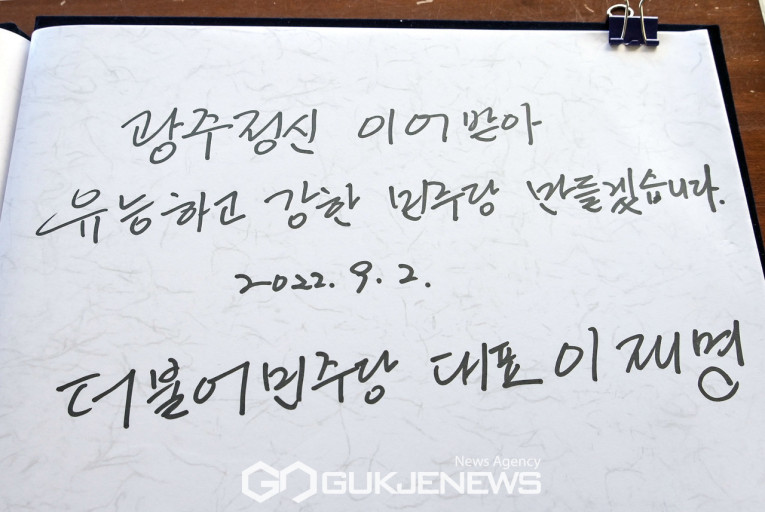 광주정신 이어받아
유능하고 강한 민주당 만들겠습니다.
2022. 9. 2.
더불어민주당 대표 이재명
News Agency
GUKJENEWS